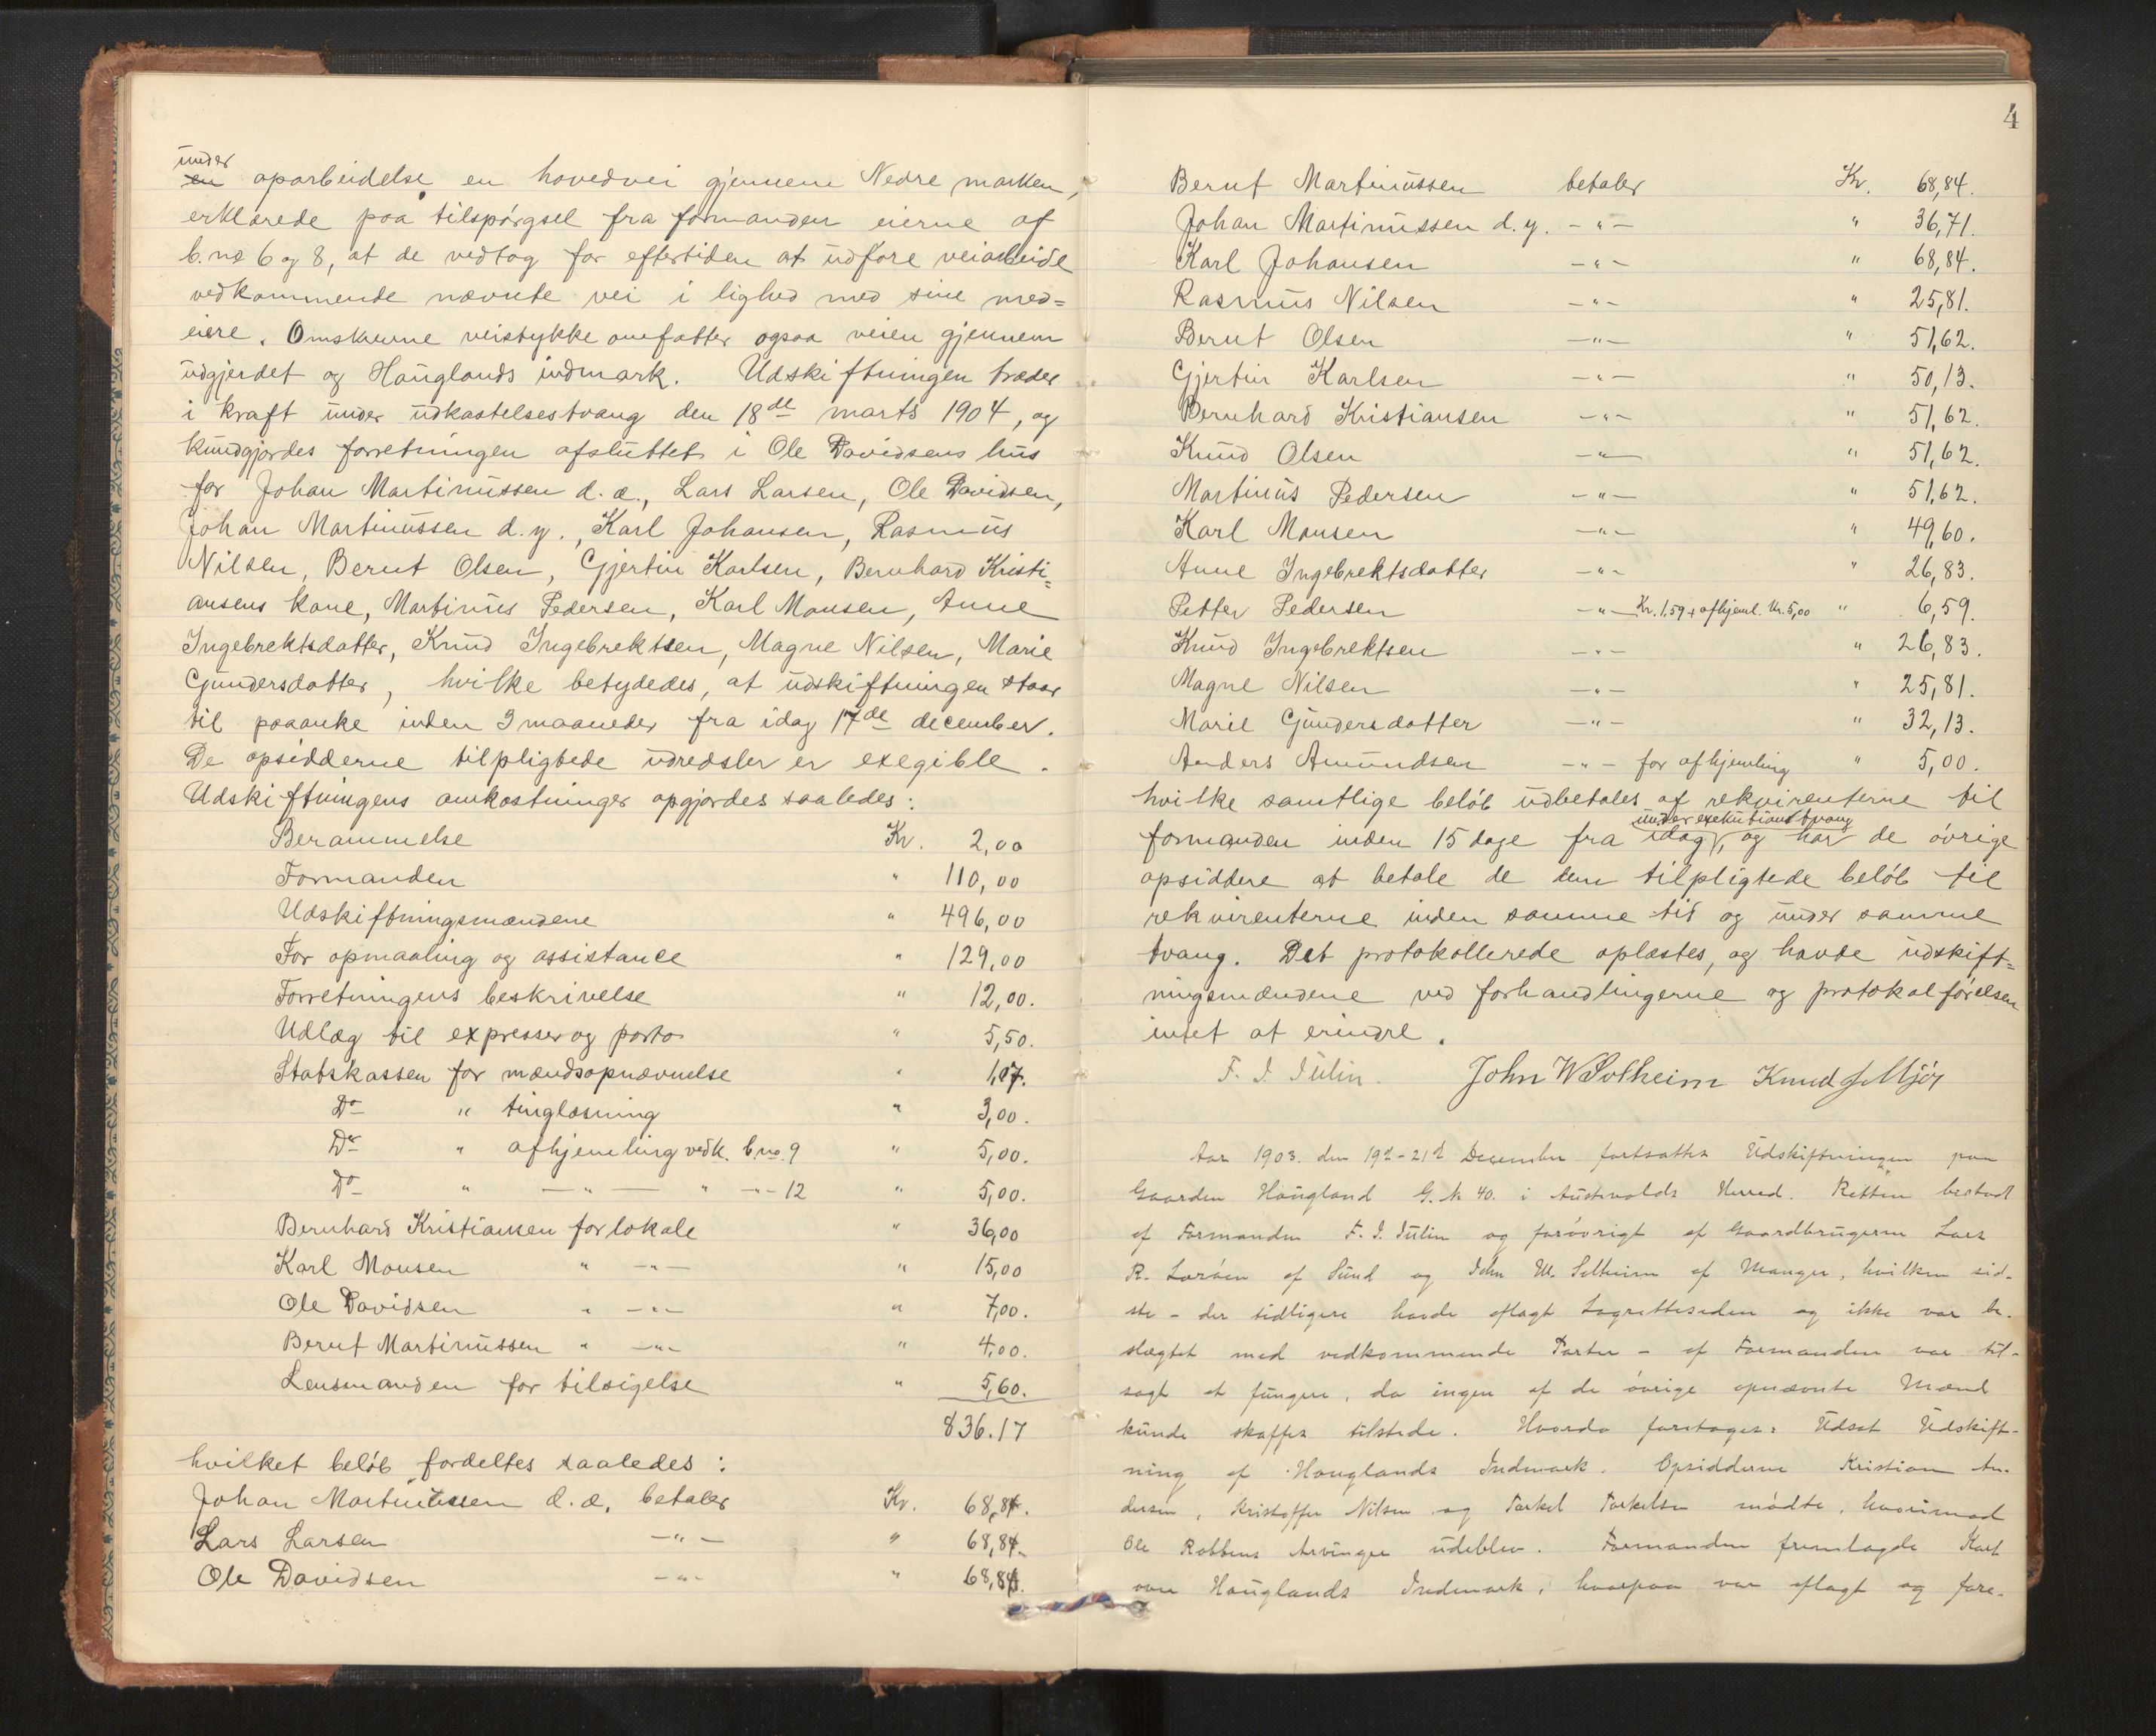 under
en oparbeidelse en hovedvei gjennem Nedre marken,
erklærede paa tilspørgsel fra formanden eierne af
b.no 6 og 8, at de vedtog for eftertiden at udføre veiarbeide
vedkommende nævnte vei i lighed med sine med=
eiere. Omskrevne veistykke omfatter ogsaa veien gjennem
udgjerdet og Houglands indmark. Udskiftningen træder
i kraft under udkastelsestvang den 18de marts 1904, og
kundgjordes forretningen afsluttet i Ole Davidsens hus
for Johan Martinussen d.æ., Lars Larsen, Ole Davidsen,
Johan Martinussen d.y., Karl Johansen, Rasmus
Nilsen, Bernt Olsen, Gjertin Karlsen, Bernhard Kristi=
ansens kone, Martinus Pedersen, Karl Monsen, Anne
Ingebrektsdatter, Knud Ingebrektsen, Magne Nilsen, Marie
Gundersdatter, hvilke betydedes, at udskiftningen staar
til paaanke inden 3 maaneder fra idag 17de december.
De opsidderne tilpligtede udredsler er exegible.
Udskiftningens omkostninger opgjordes saaledes:
Berammelse Kr. 2,00
Formanden " 110,00
Udskiftningsmændene " 496,00
For opmaaling og assistance " 129,00
Forretningens beskrivelse " 12,00.
Udlæg til expresser og porto " 5,50.
Statskassen for mændsopnævnelse " 1,07.
Do " tinglæsning " 3,00.
Do " afhjemling vedk. b.no. 9 " 5,00.
Do " — " — " — " - 12 " 5,00.
Bernhard Kristiansen for lokale " 36,00
Karl Monsen " — " — " 15,00
Ole Davidsen " — " — " 7,00.
Bernt Martinussen " — " — " 4,00.
Lensmanden for tilsigelse " 5,60.
836.17
hvilket beløb fordeltes saaledes:
Johan Martinussen d.æ. betaler Kr. 68,84.
Lars Larsen — " — " 68,84.
Ole Davidsen — " — " 68,84.
4
Bernt Martinussen betaler Kr. 68,84.
Johan Martinussen d.y. — " — " 36,71.
Karl Johansen — " — " 68,84.
Rasmus Nilsen — " — " 25,81.
Bernt Olsen — " — " 51,62.
Gjertin Karlsen — " — " 50,13.
Bernhard Kristiansen — " — " 51,62.
Knud Olsen — " — " 51,62.
Martinus Pedersen — " — " 51,62.
Karl Monsen — " — " 49,60.
Anne Ingebrektsdatter — " — " 26,83.
Petter Pedersen — " — Kr. 1,59 + afhjeml. Kr. 5,00 " 6,59.
Knud Ingebrektsen — " — " 26,83.
Magne Nilsen — " — " 25,81.
Marie Gundersdatter — " — " 32,13.
Anders Amundsen — " — for afhjemling " 5,00.
hvilke samtlige beløb udbetales af rekvirenterne til
under exekutionstvang
formanden inden 15 dage fra idag, og har de øvrige
opsiddere at betale de dem tilpligtede beløb til
rekvirenterne inden samme tid og under samme
tvang. Det protokollerede oplæstes, og havde udskift=
ningsmændene ved forhandlingerne og protokolførelsen
intet at erindre.
F. I. Tulin. John W Solheim Knud J. Mjøs
Aar 1903. den 19d - 21d December fortsattes Udskiftningen paa
Gaarden Hougland G. N 40. i Austevolds Herred. Retten bestod
af Formanden F. I. Tulin og forøvrigt af Gaardbrugerne Lars
R. Lerøen af Sund og John W. Solheim af Manger, hvilken sid-
ste - der tidligere havde aflagt Lagretteseden og ikke var be-
slægtet med vedkommende Parter - af Formanden var til-
sagt at fungere, da ingen af de øvrige opnævnte Mænd
kunde skaffes tilstede. Hvorda foretages: Udsat Udskift-
ning af Houglands Indmark. Opsidderne Kristian An-
dersen, Kristoffer Nilsen og Torkel Torkelsen mødte, hvorimod
Ole Rabbens Arvinger udeblev. Formanden fremlagde Kart
over Houglands Indmark, hvorpaa var aflagt og fore-